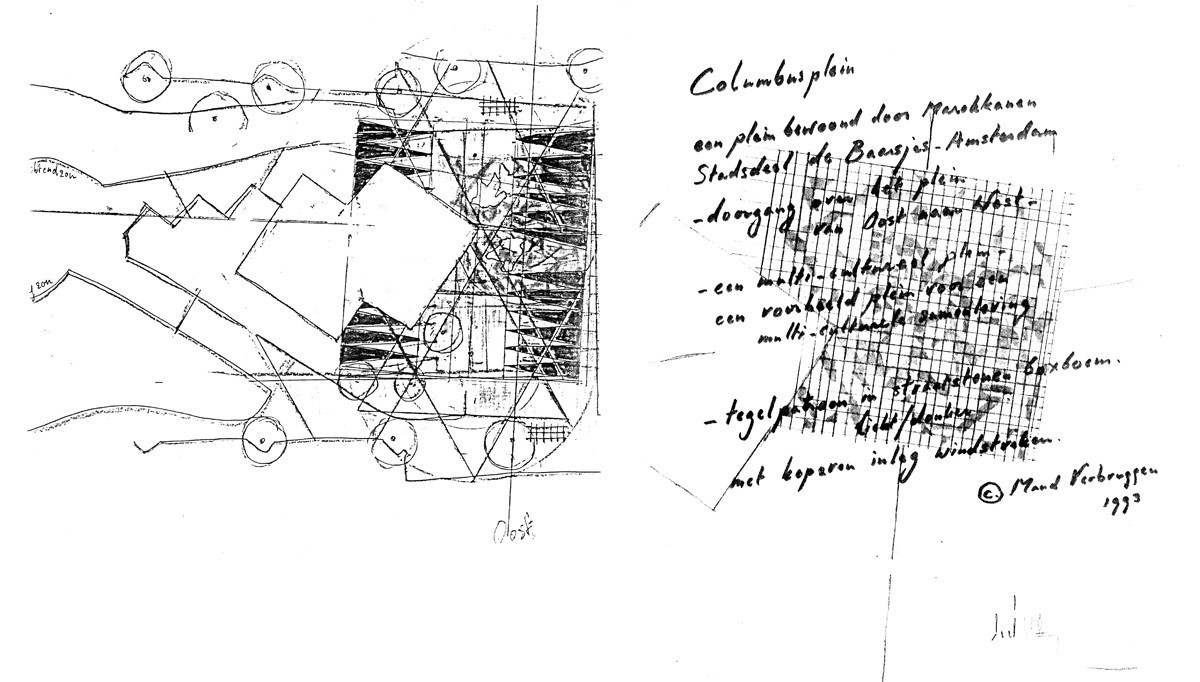 Columbusplein
een plein bewoond door Marokkanen
Stadsdeel de Baarsjes-Amsterdam
-doorgang over het plein
van Oost naar West-
-een multi-cultureel plein-
een voorbeeld plein van een
multi-culturele samenleving
-tegelpatroon in straatstenen
licht/donker
met koperen inleg windstreken.
© Maud Verbruggen
1993
Oost